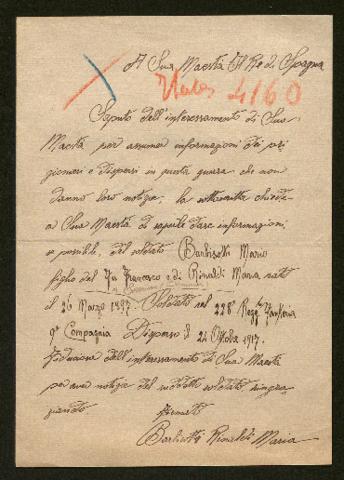 A Sua Maestà Il Re di Spagna
4160
Saputo dell'interessamento di Sua
Maestà per assumer informazioni dei pri
gionieri e dispersi in questa guerra che non
danno loro notizie, la sottoscritta chiede
a Sua Maestà di saperle dare informazioni
se possibile, del soldato Barbisotti Mario
figlio del Fu Francesco e di Rinaldi Maria nato
il 26 Marzo 1897. Soldato nel 228° Regg. Fanteria
9ª Compagnia Disperso il 24 Ottobre 1917.
Fiduciosa dell'interessamento di Sua Maestà
per aver notizie del suddetto soldato ringra
ziando
Firmato
Barbisotti Rinaldi Maria